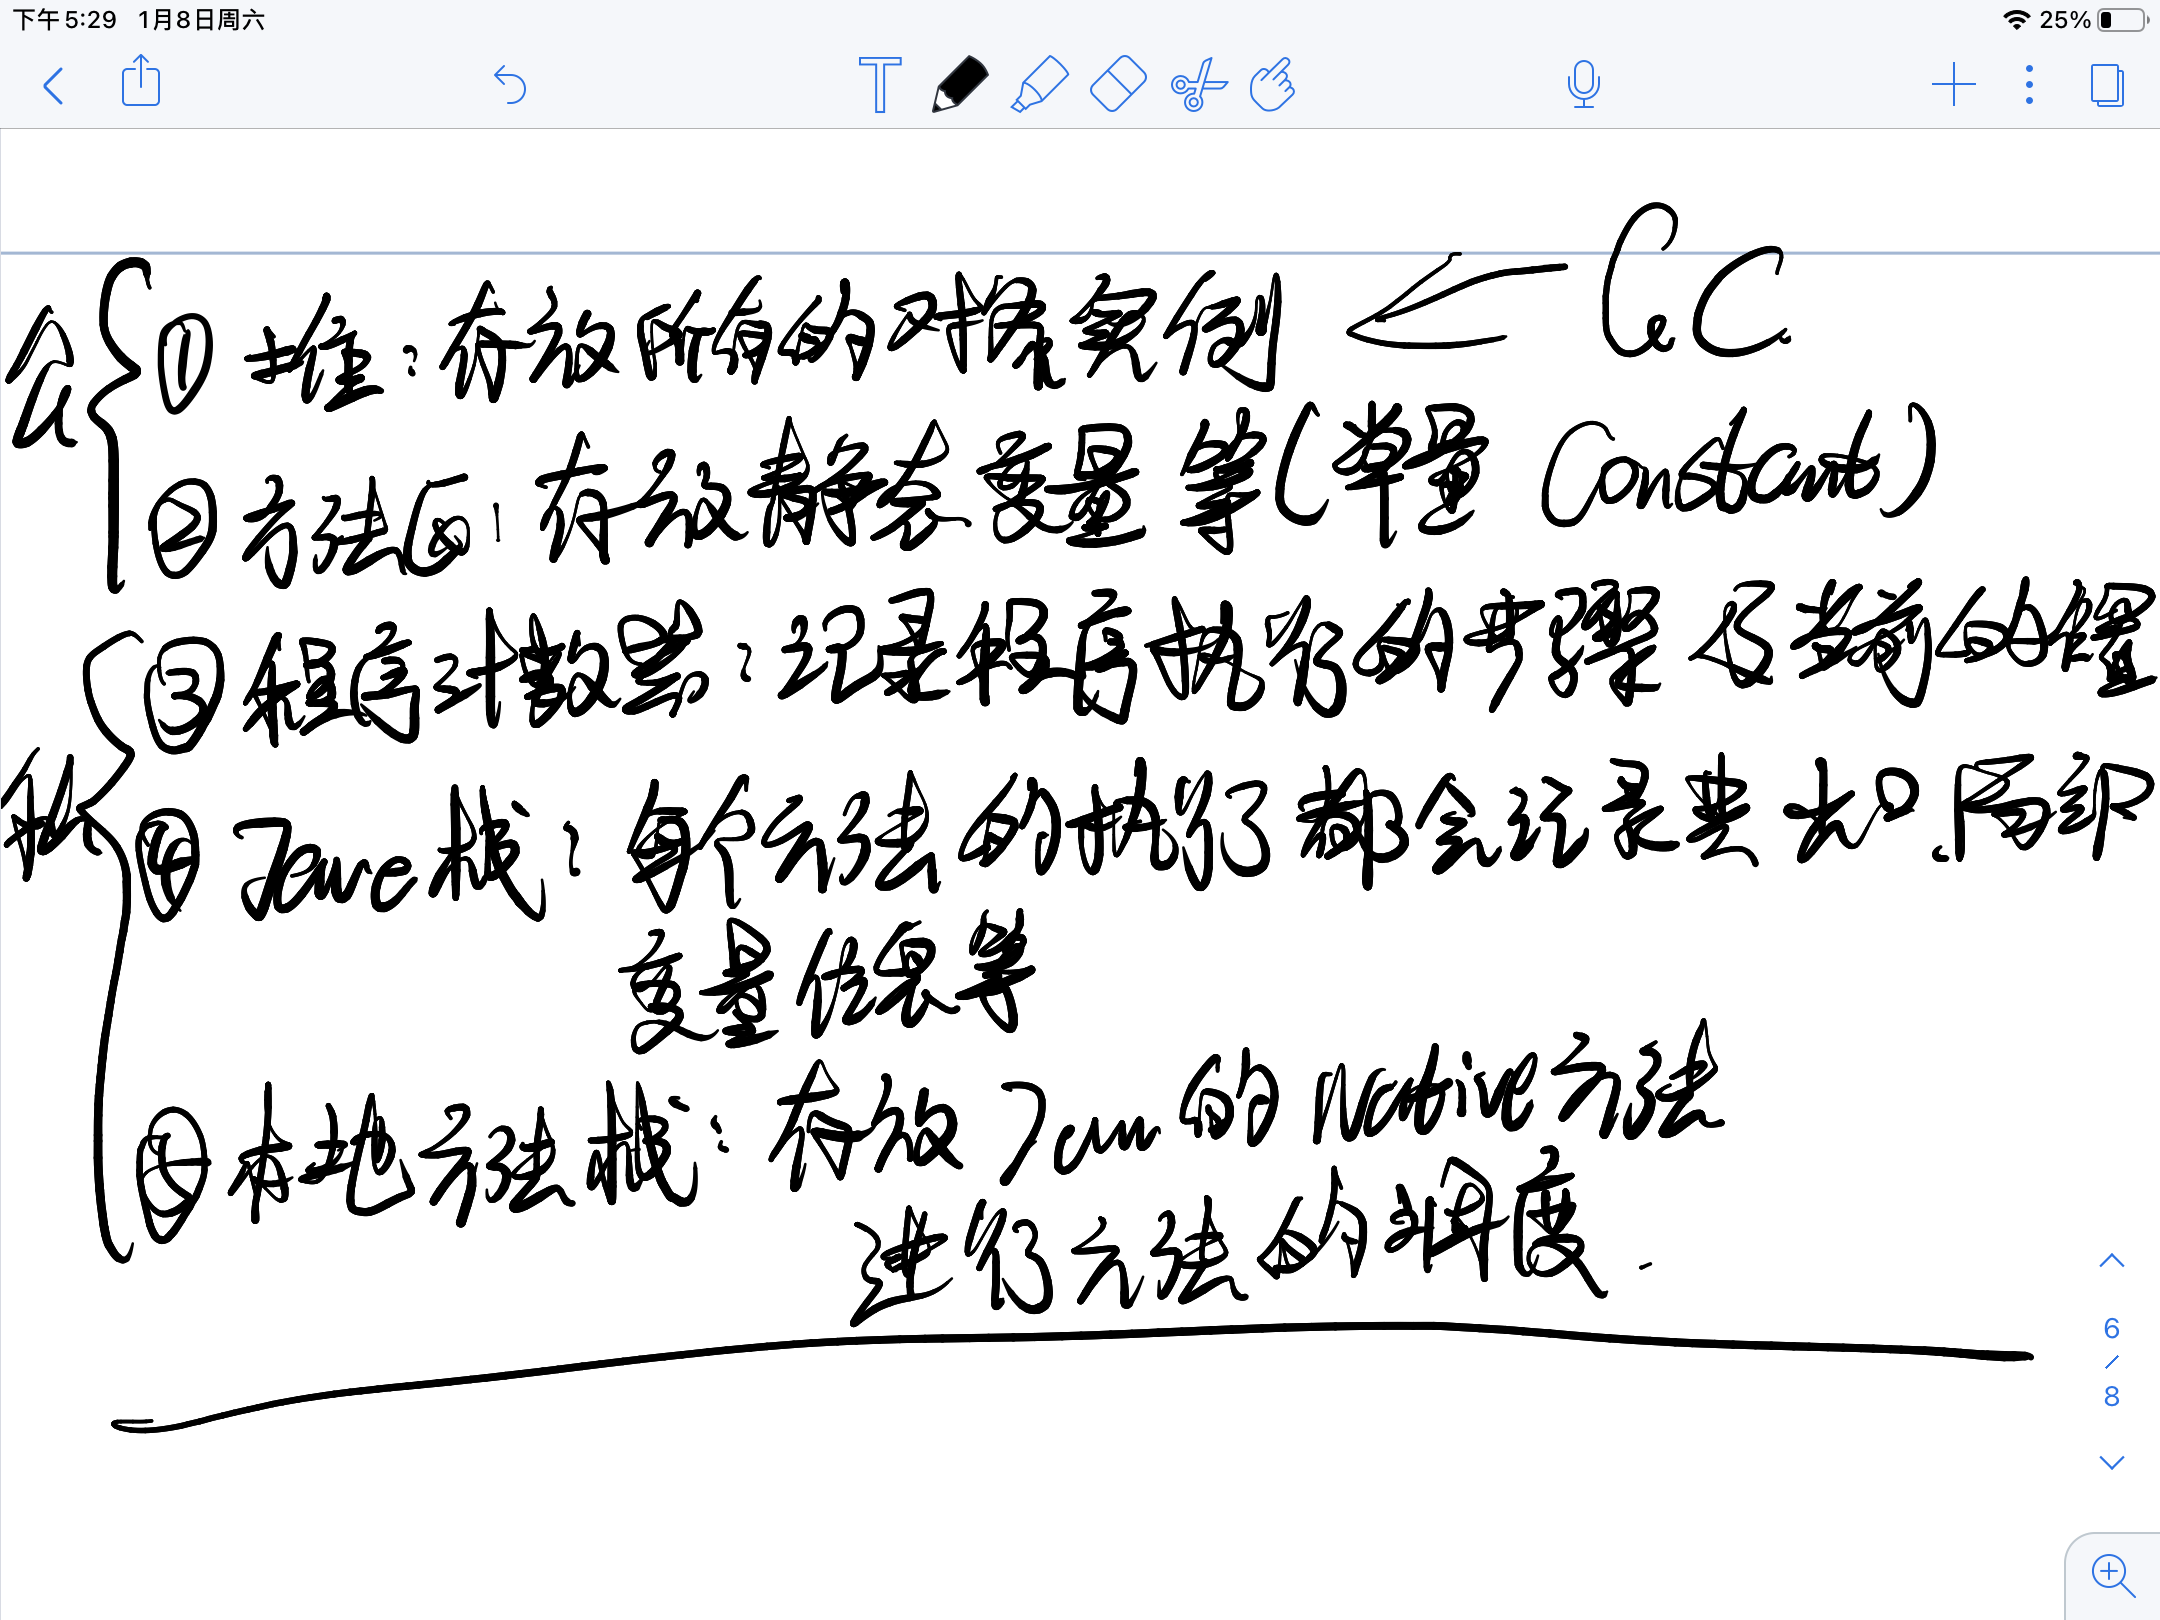 下午5:29 1月8日周六
25%
公 ①堆:存放所有的对象实例 ← GC
②方法区:存放静态变量等(常量 Constant)
③程序计数器:记录程序执行的步骤及当前的位置
私
④Java栈:每个方法的执行都会记录其 .局部
变量信息等
⑤本地方法栈:存放Jvm的Native方法
进行方法的调度.
6
/
8